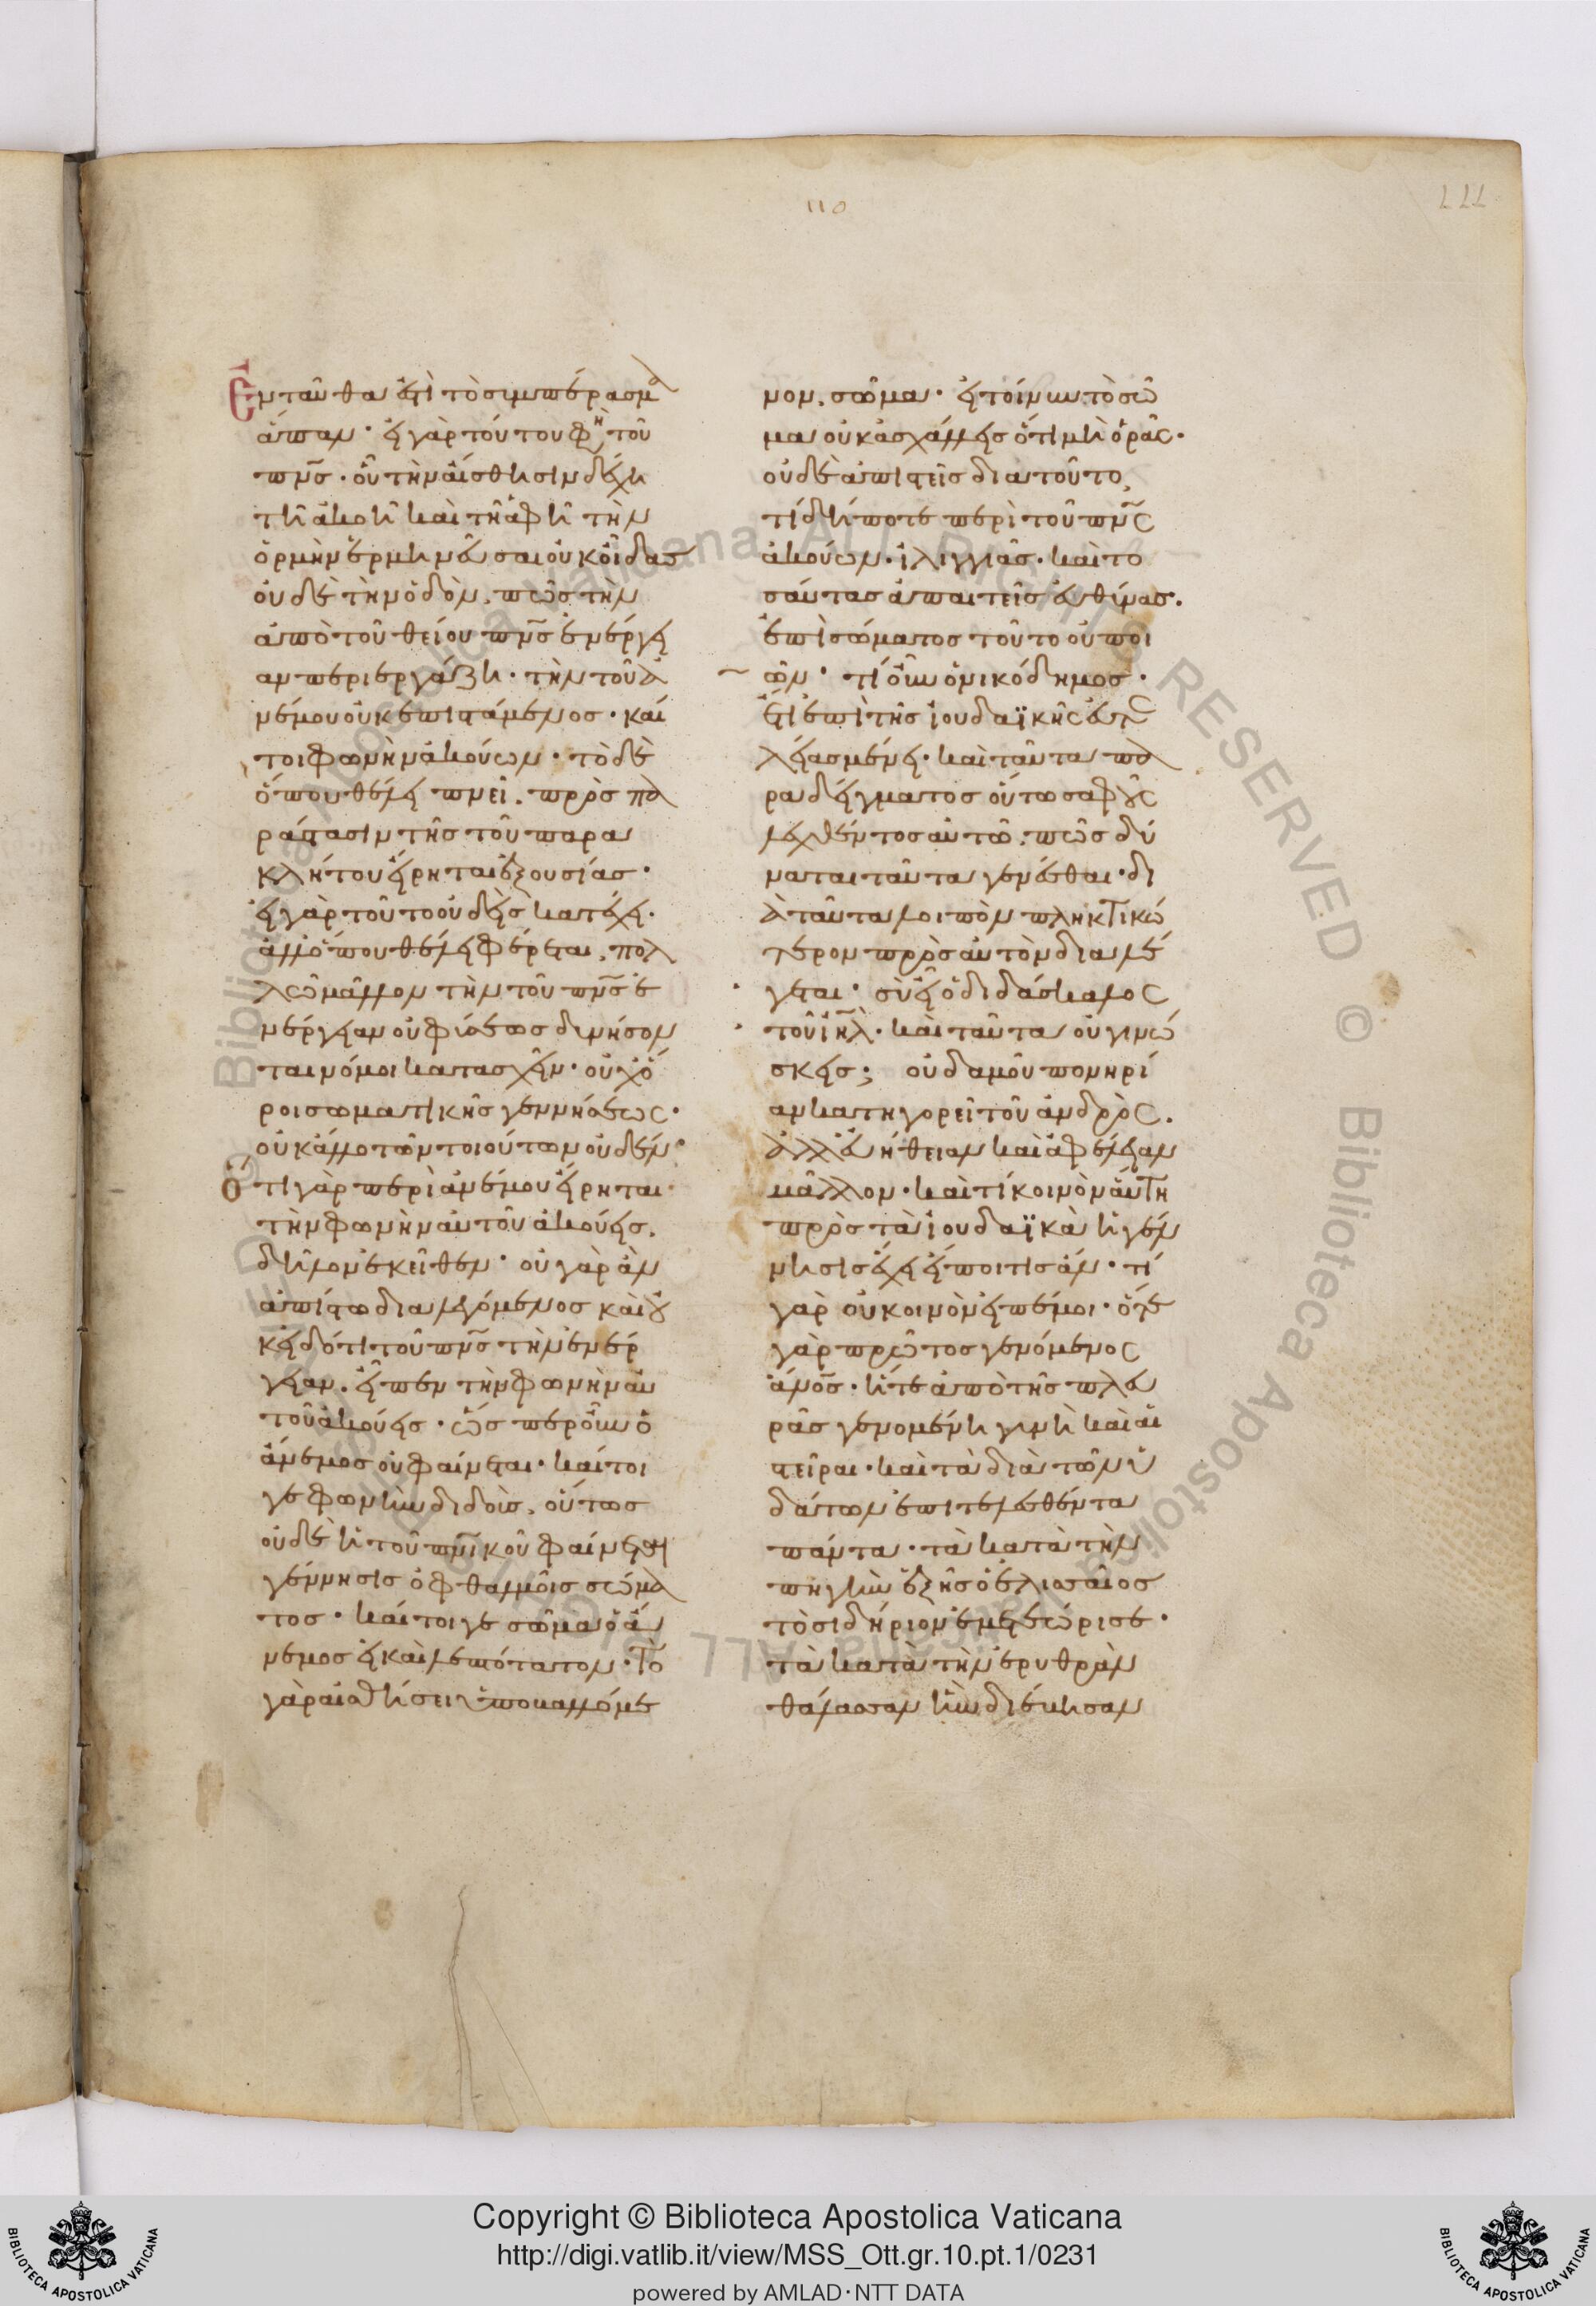 110
111
Ἐνταῦθα ἐστὶ τὸ συμπέρασμα
ἅπαν· εἰ γὰρ τούτου φη τοῦ
πνς· οὗ τὴν αἴσθησιν δέχη
τῆ ἀκοῆ καὶ τῆ ἁφῆ τὴν
ὁρμὴν ἑρμηνεῦσαι οὐκ οἶδας
οὐδὲ τὴν ὁδὸν. πῶς τὴν
ἀπὸ τοῦ θείου πνς ἐνέργει
αν περιεργάζη· τὴν τοῦ ἀ
νέμου οὐκ ἐπιστάμενος· καί
τοι φωνὴν ἀκούων· τὸ δὲ
ὅπου θέλει πνεῖ. πρὸς πα
ράστασιν τῆς τοῦ παρα
κλήτου εἴρηται ἐξουσίας·
εἰ γὰρ τοῦτο οὐδεὶς κατέχει.
ἀλλ' ὅπου θέλει φέρεται. πολ
λῶ μᾶλλον τὴν τοῦ πνς ἐ
νέργειαν οὐ φύσεως δυνήσον
ται νόμοι κατασχεῖν· οὐχ ὅ
ροι σωματικῆς γεννήσεως·
οὐκ ἄλλο τῶν τοιούτων οὐδέν·
ὅτι γὰρ περὶ ἀνέμου εἴρηται
τὴν φωνὴν αὐτοῦ ἀκούεις.
δῆλον ἐκεῖθεν· οὐ γὰρ ἂν
ἀπίστω διαλεγόμενος καὶ οὐ
κ εἰδότι τοῦ πνς τὴν ἐνέρ
γειαν. εἶπεν τὴν φωνὴν αὐ
τοῦ ἀκούεις· ὥσπερ οὖν ὁ
ἄνεμος οὐ φαίνεται· καίτοι
γε φωνὴν διδοὺς. οὕτως
οὐδὲ ἡ τοῦ πνικοῦ φαίνεται
γέννησις ὀφθαλμοῖς σώμα
τος· καίτοιγε σῶμα ὁ ἄ
νεμος εἰ καὶ λεπτότατον· τὸ
γὰρ αἰσθήσει ὑποβαλλόμε
νον. σῶμα· εἰ τοίνυν τὸ σῶ
μα οὐκ ἀσχάλλεις ὅτι μὴ ὁρᾶς·
οὐδὲ ἀπιστεῖς διὰ τοῦτο,
τί δήποτε περὶ τοῦ πνς
ἀκούων· ἰλιγγιᾶς· καὶ το
σαύτας ἀπαιτεῖς εὐθύνας.
ἐπὶ σώματος τοῦτο οὐ ποι
ῶν· τί οὖν ὁ νικόδημος·
ἔτι ἐπὶ τῆς ἰουδαϊκῆς εὐτε
λείας μένει· καὶ ταῦτα πα
ραδείγματος οὕτω σαφοῦς
λεχθέντος αὐτῶ. πῶς δύ
ναται ταῦτα γενέσθαι· δι
ὰ ταῦτα λοιπὸν πληκτικώ
τερον πρὸς αὐτὸν διαλέ
γεται· σὺ εἶ ὁ διδάσκαλος
τοῦ ἰηλ· καὶ ταῦτα οὐ γινώ
σκεις; οὐδαμοῦ πονηρί
αν κατηγορεῖ τοῦ ἀνδρὸς.
ἀλλ' εὐήθειαν καὶ ἀφέλειαν
μᾶλλον· καὶ τί κοινὸν αὕτη
πρὸς τὰ ἰουδαϊκὰ ἡ γέν
νησις ἔχει εἴποι τις ἄν· τί
γὰρ οὐ κοινὸν εἰπέ μοι· ὅ τε
γὰρ πρῶτος γενόμενος
ἄνος· ἥ τε ἀπὸ τῆς πλευ
ρᾶς γενομένη γυνὴ καὶ αἱ
στεῖραι· καὶ τὰ διὰ τῶν ὑ
δάτων ἐπιτελεσθέντα
πάντα· τὰ κατὰ τὴν
πηγὴν ἐξ ἧς ὁ ἐλισσαῖος
τὸ σιδήριον ἐμετεώρισε·
τὰ κατὰ τὴν ἐρυθρὰν
θάλασσαν ἣν διέβησαν
Copyright © Biblioteca Apostolica Vaticana
http://digi.vatlib.it/view/MSS_Ott.gr.10.pt.1/0231
powered by AMLAD·NTT DATA